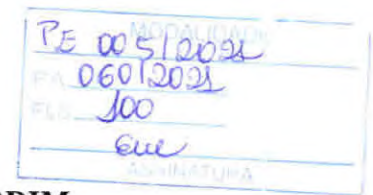 MODALIDADE
PE 005/2021
PA 060/2021
FLS 100
ASSINATURA